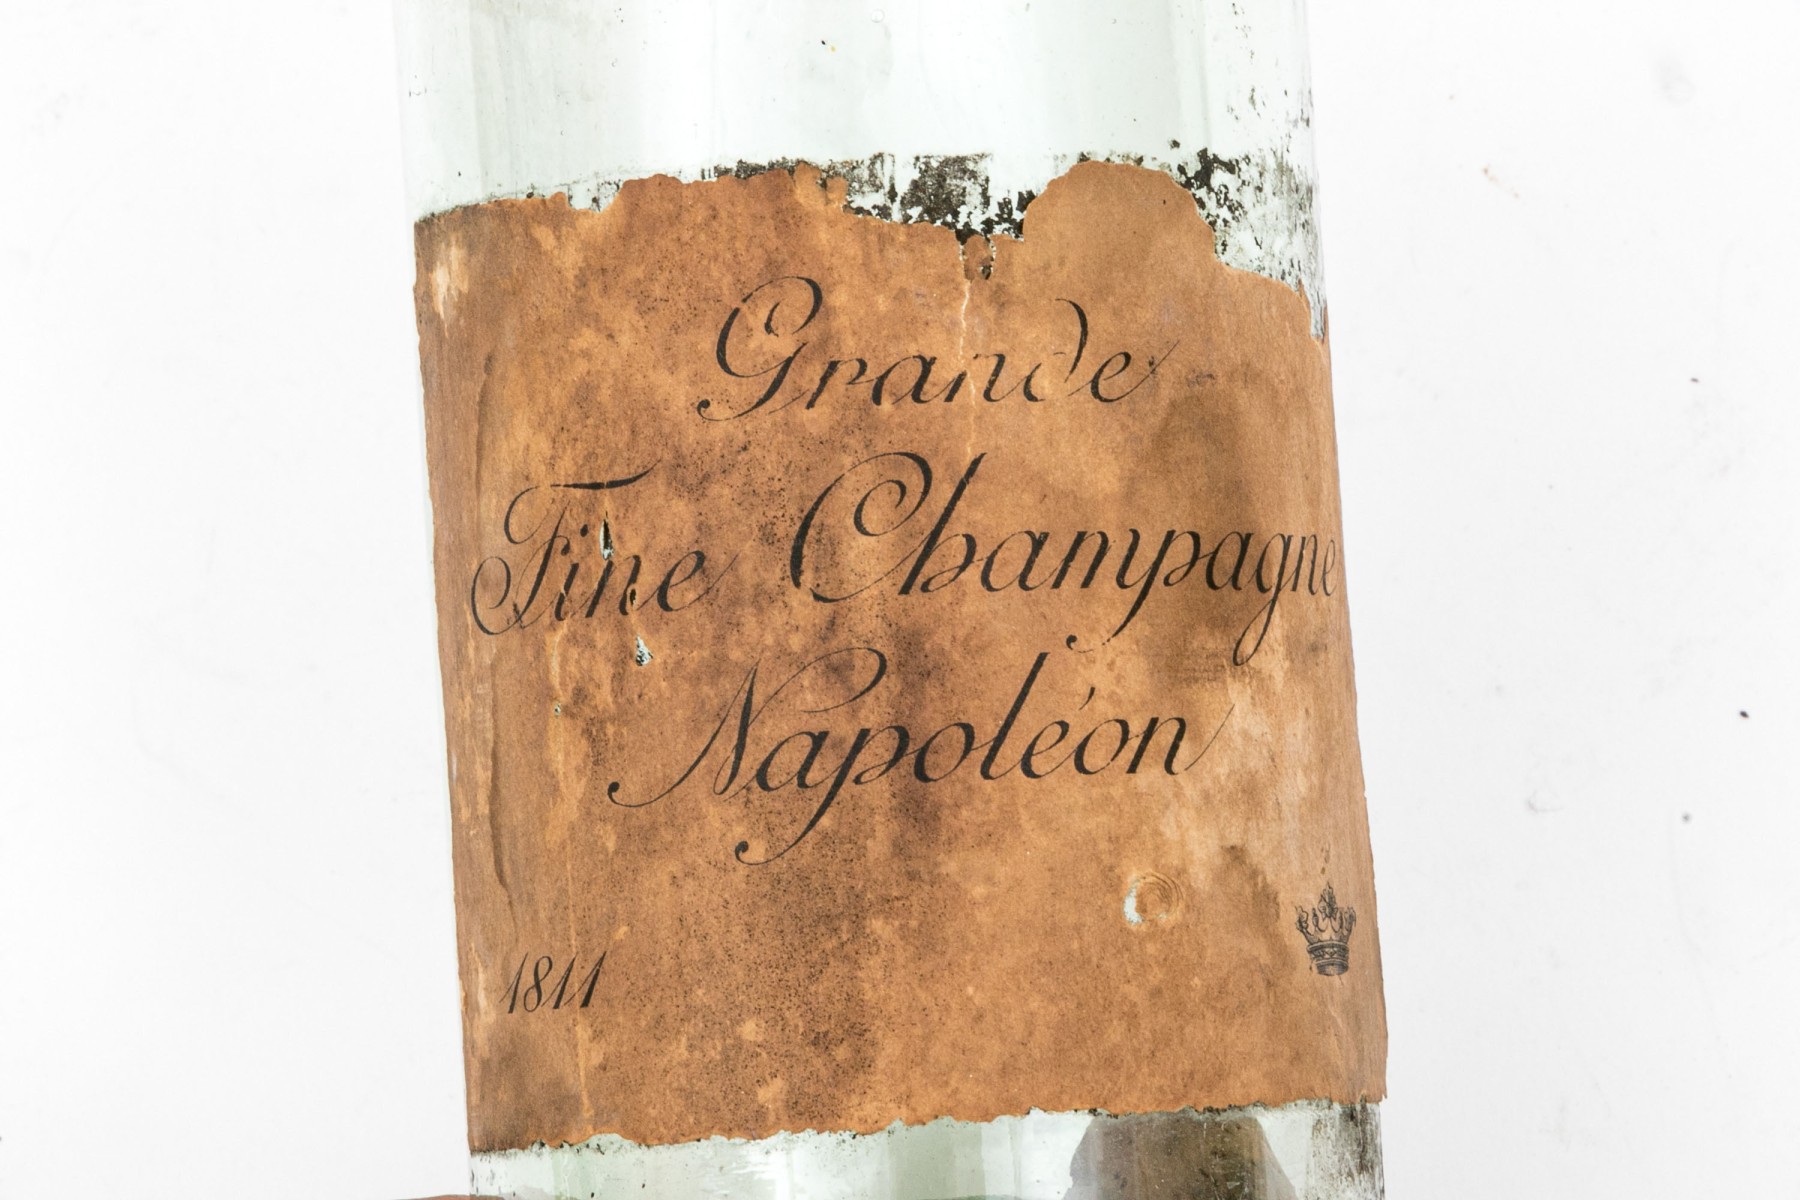 Grande
Fine Champagne
Napoléon
1811